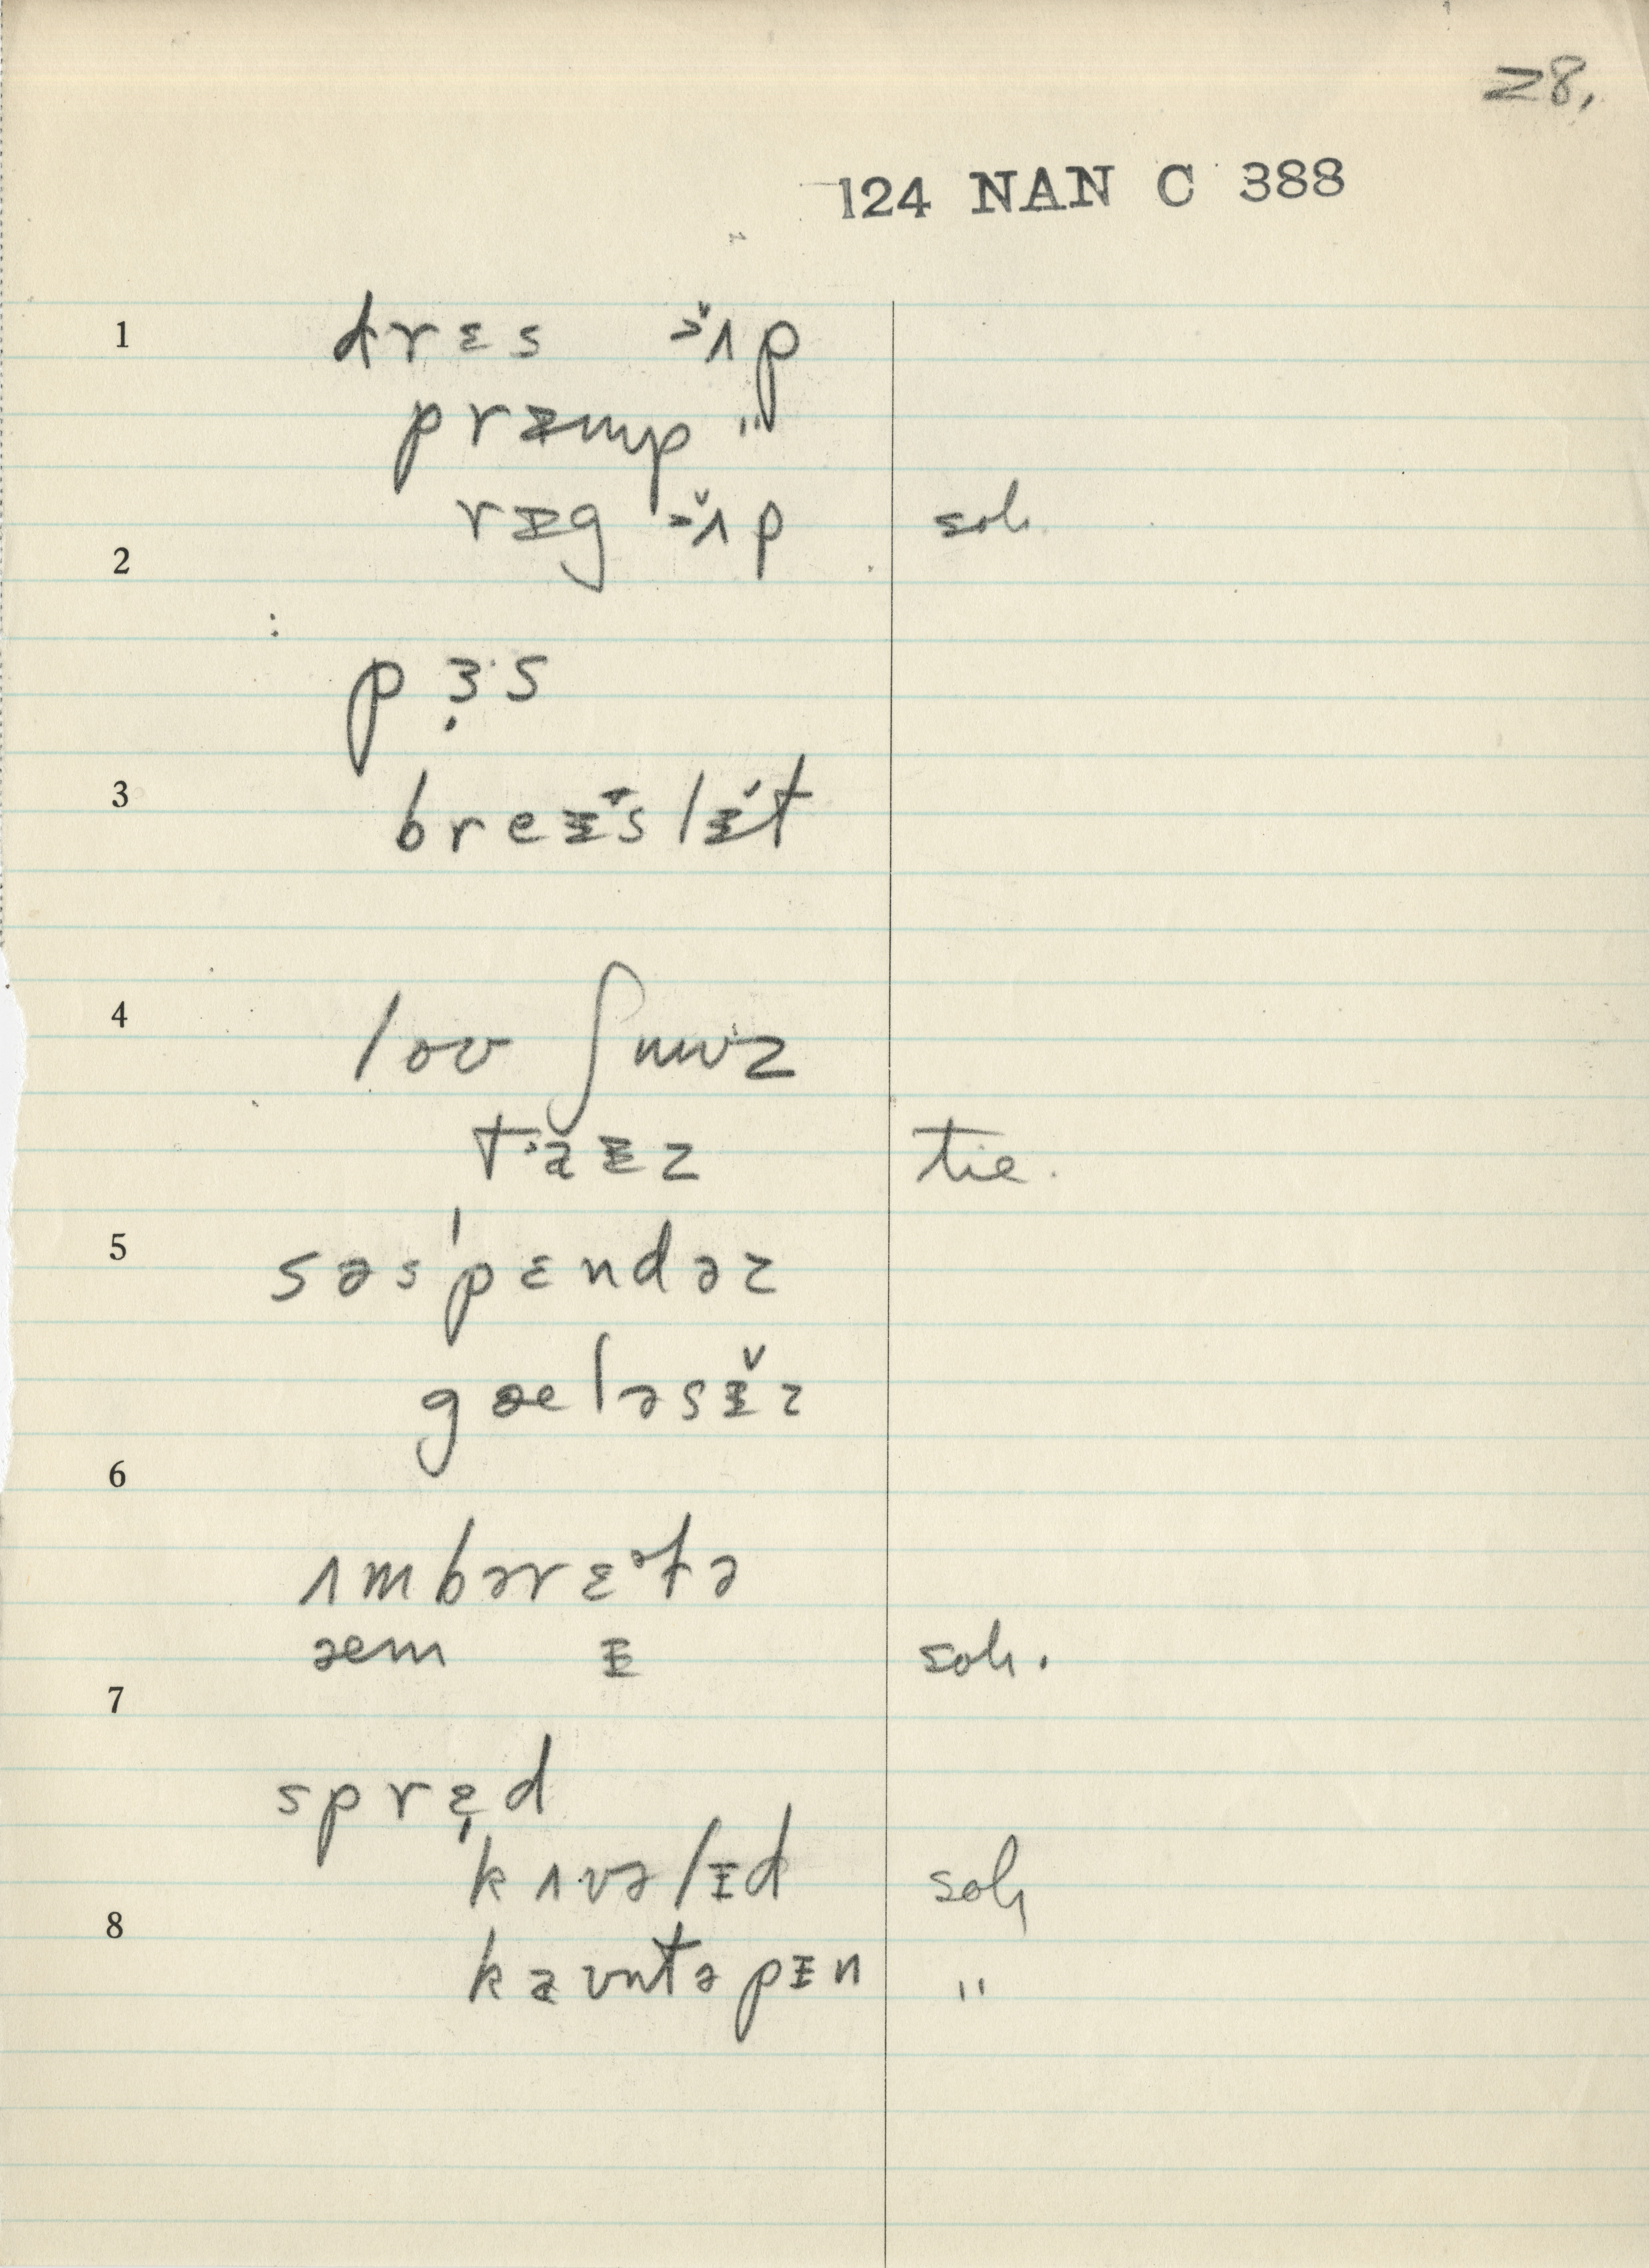 28.
124 NAN C 388
1 drɛs ɔ̆ʌp
præmp "
ræg ɔ̆ʌp soh.
2
: pɜ̣·s
3 breɪ̆slɪ̆t
4 loʊ ʃuuz
taɪz tie.
5 səs'pɛndəz
gæləsɪ̆z
6 ʌmbərɛᵊtə
æm ɪ soh.
7 sprɛ̣d
kʌvəlɪd soh
8 kaʊntəpɪn "